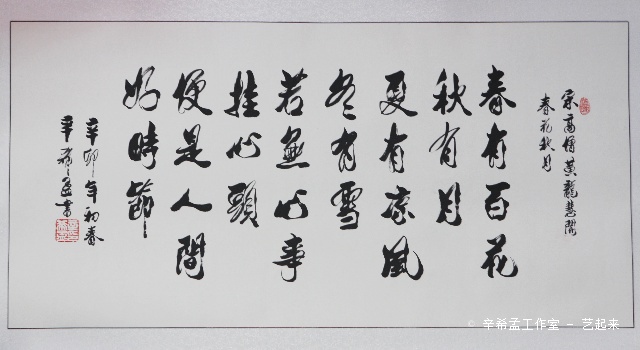 宋高僧黄龍慧開
春花秋月
春有百花
秋有月
夏有凉風
冬有雪
若無心事
挂心頭
便是人間
好時節
辛卯年初春
辛希孟書
© 辛希孟工作室 – 艺起来